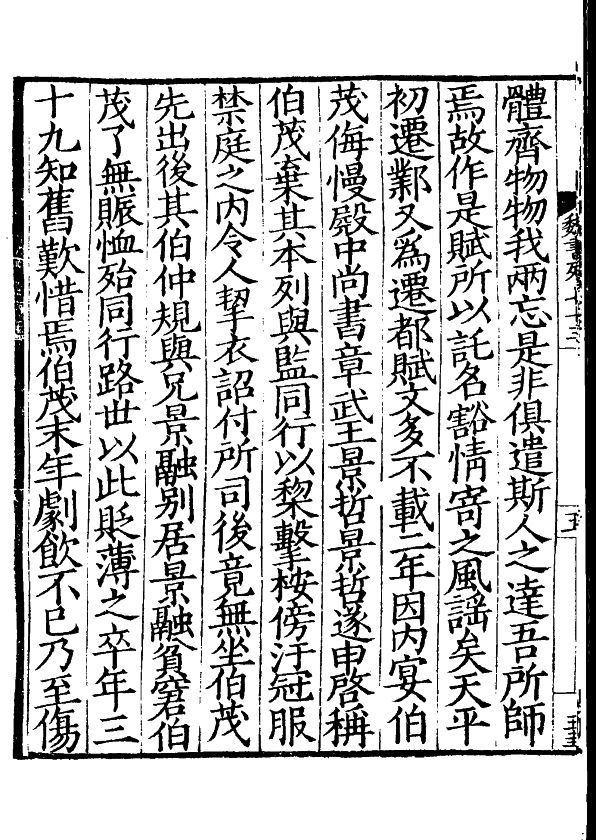 體齊物物我兩忘是非俱遣斯人之達吾所師
焉故作是賦所以託名豁情寄之風謡矣天平
初遷鄴又爲遷都賦文多不載二年因内宴伯
茂侮慢殿中尚書章武王景哲景哲遂申啓稱
伯茂棄其本列與監同行以棃擊桉傍汙冠服
禁庭之内令人挈衣詔付所司後竟無坐伯茂
先出後其伯仲規與兄景融别居景融貧窘伯
茂了無賑恤殆同行路世以此貶薄之卒年三
十九知舊歎惜焉伯茂末年劇飲不已乃至傷